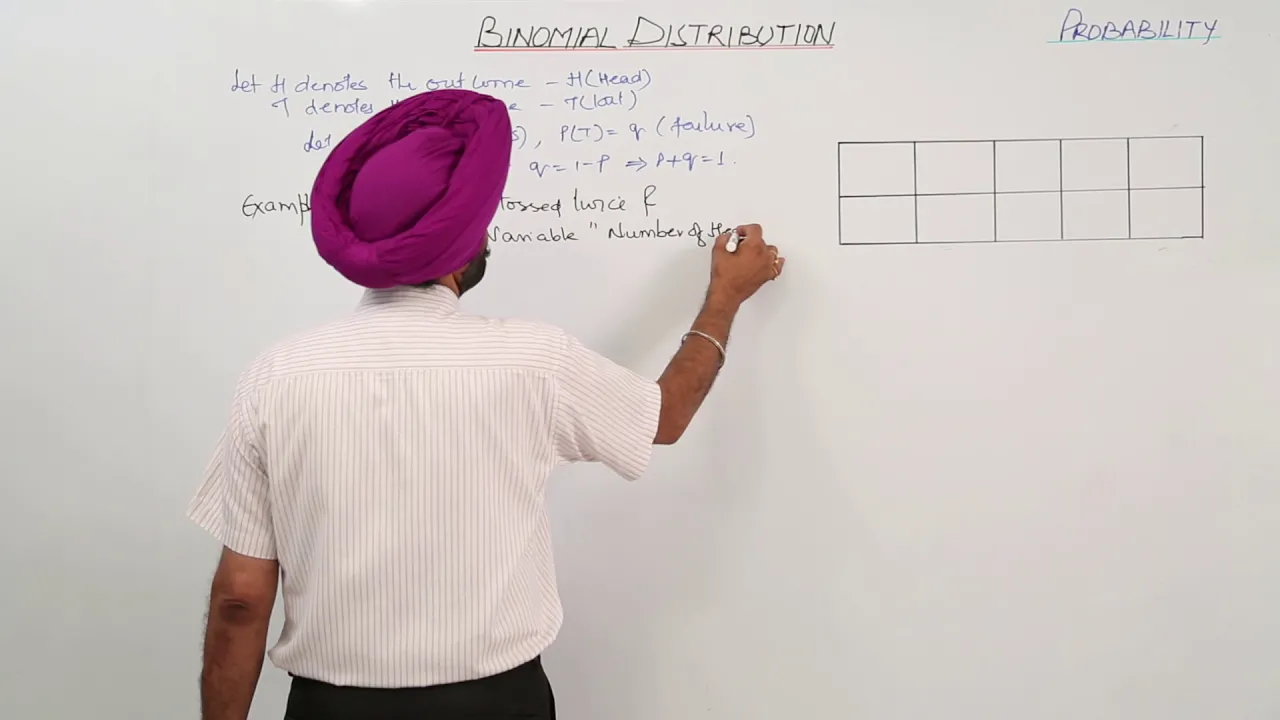 BINOMIAL DISTRIBUTION
PROBABILITY
Let H denotes the outcome – H(Head)
T denotes – T(
Let , P(T) = q (failure)
q = 1 – P ⇒ P + q = 1.
Examp tossed twice &
Variable " Number of He